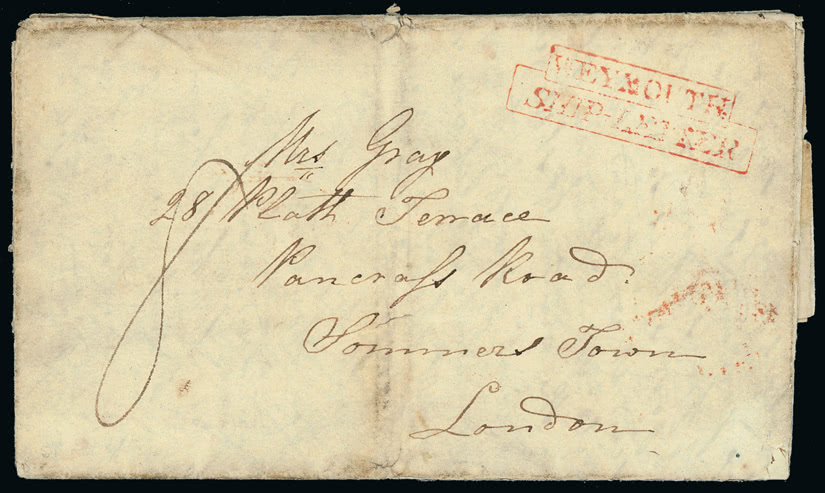 WEYMOUTH
SHIP-LETTER
Mrs Gray
28 Platt Terrace
Pancrass Road
Sommers Town
London
8